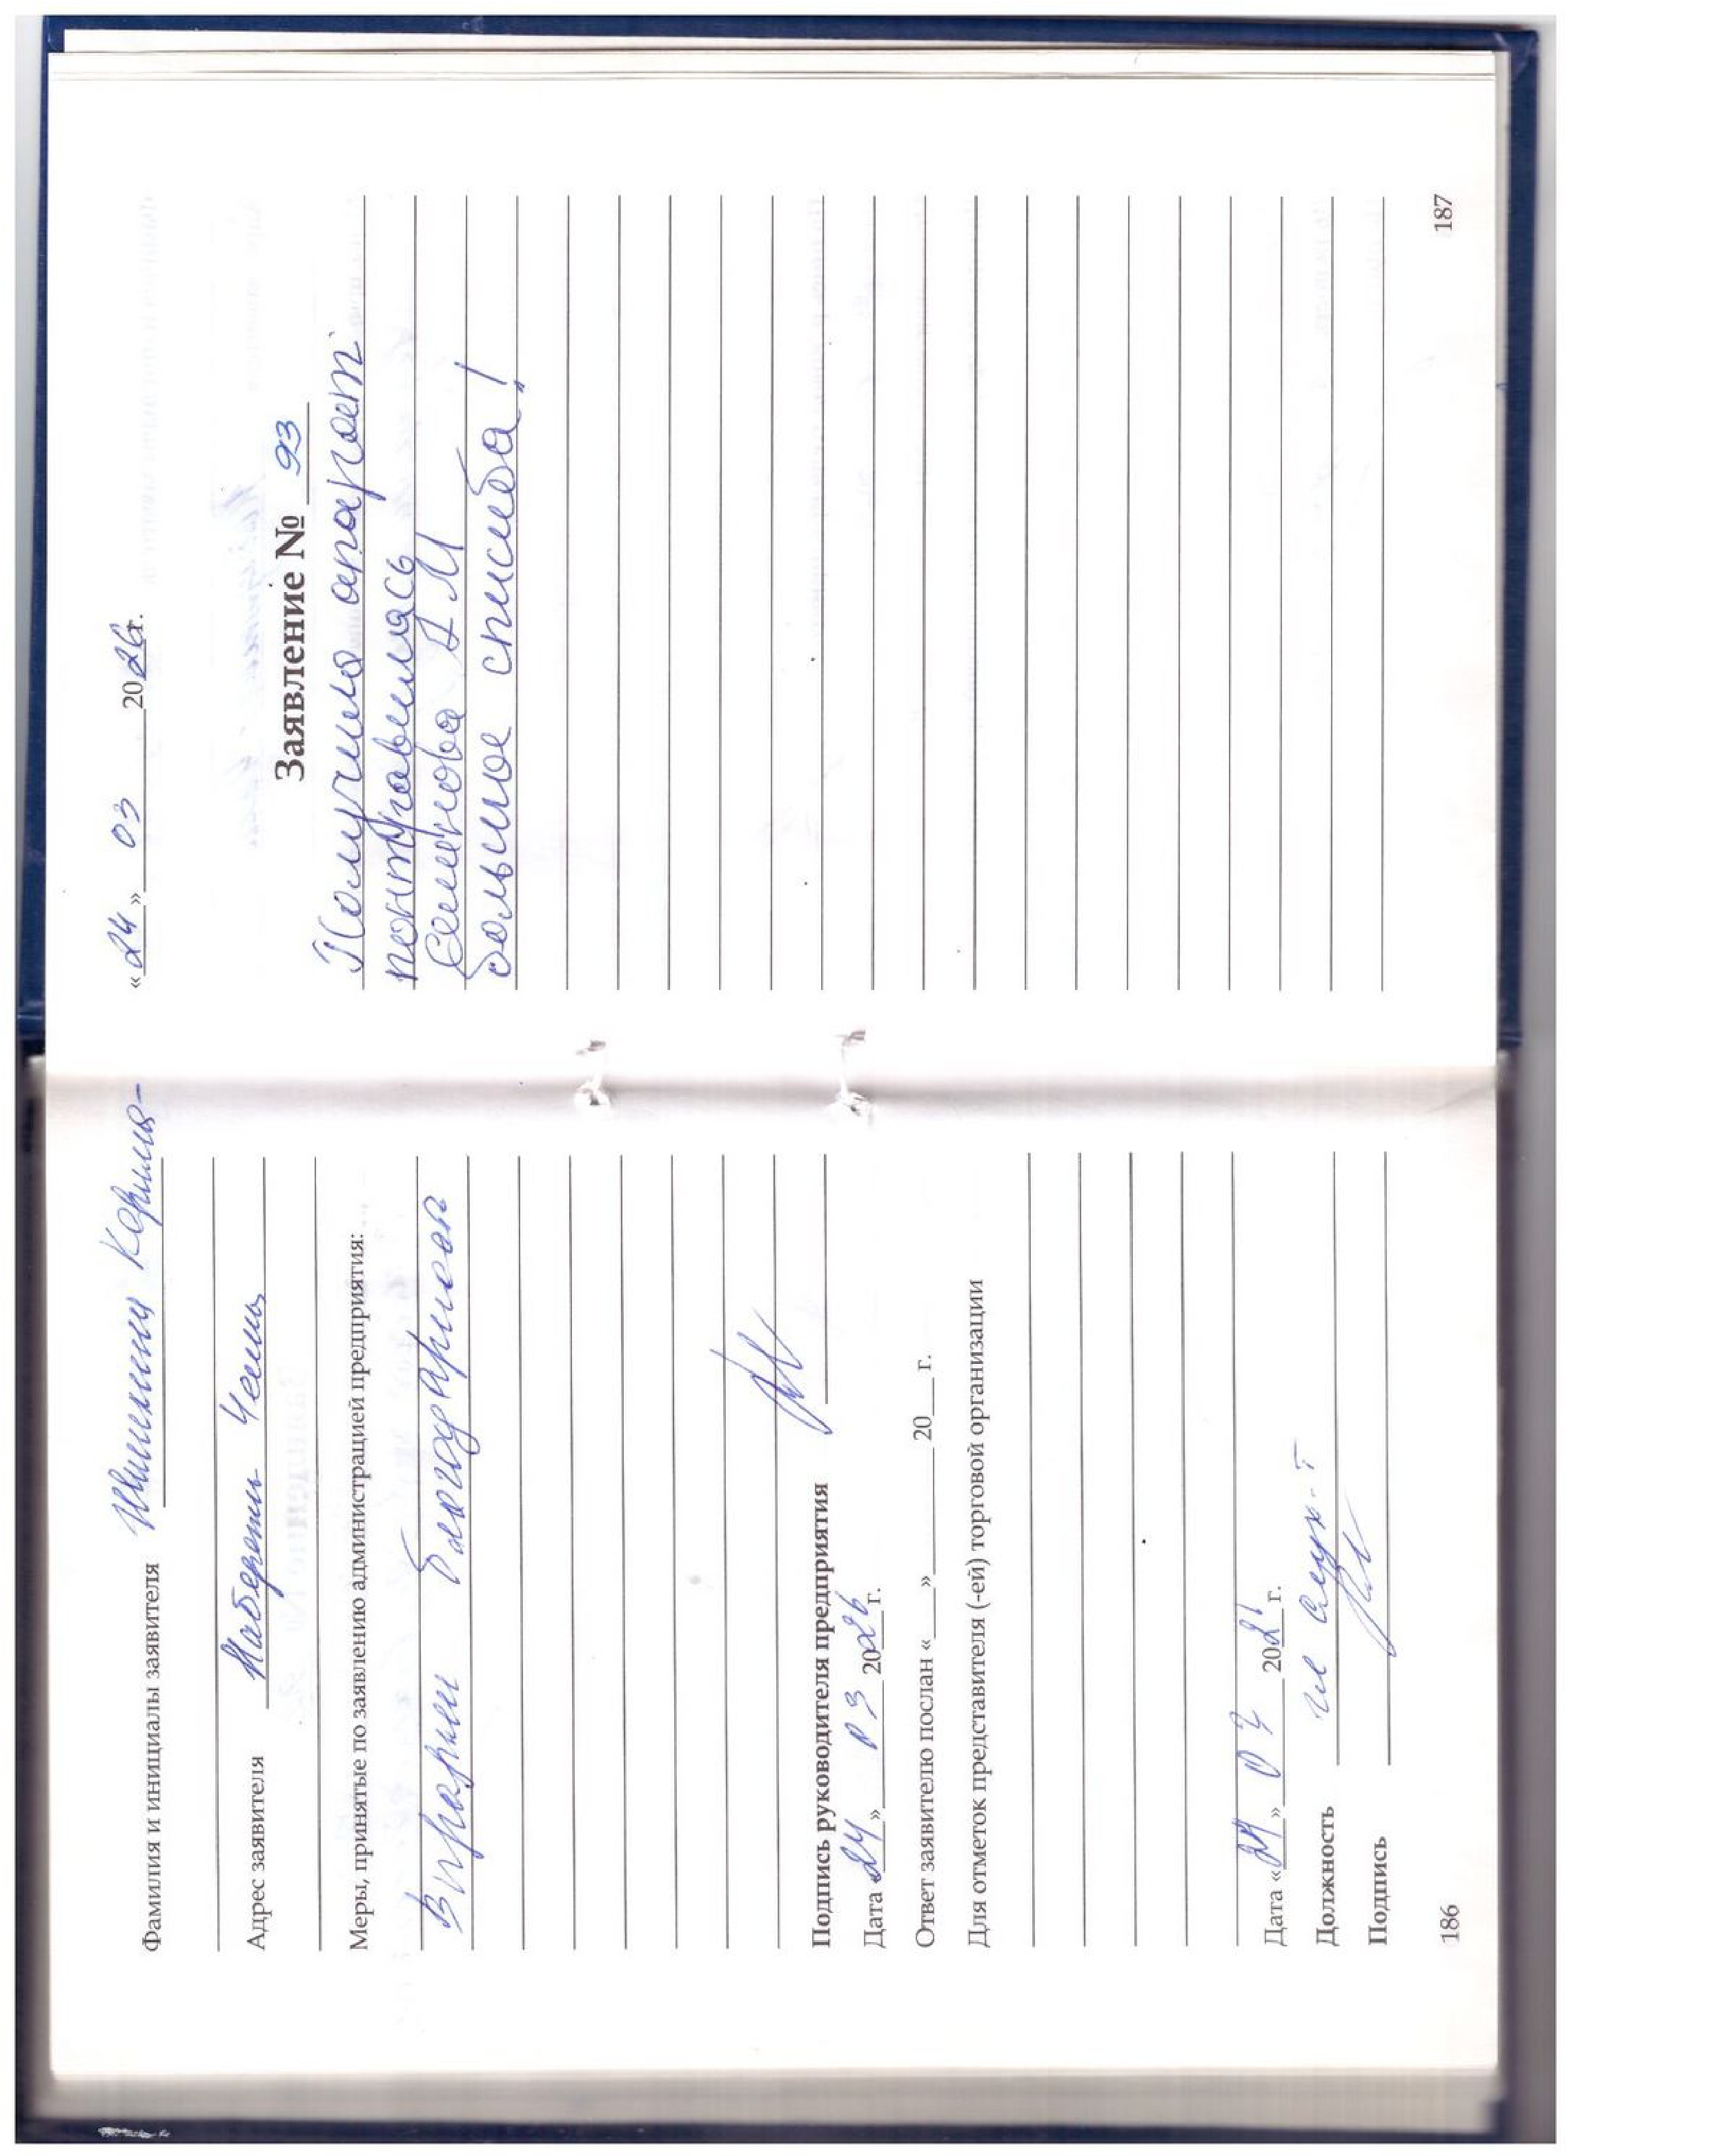 Фамилия и инициалы заявителя
Адрес заявителя Набережн Челны
Меры, принятые по заявлению администрацией предприятия:
Вправили благодарность
Подпись руководителя предприятия
Дата 24 » 03 2026 г.
Ответ заявителю послан «___» ______ 20__ г.
Для отметок представителя (-ей) торговой организации
Дата « 24 » 03 202 г.
Должность
Подпись
186
« 24 » 03 2026 г.
Заявление № 93
Получила апарат
понтравилась
Семенова А М
большое списиба!
187